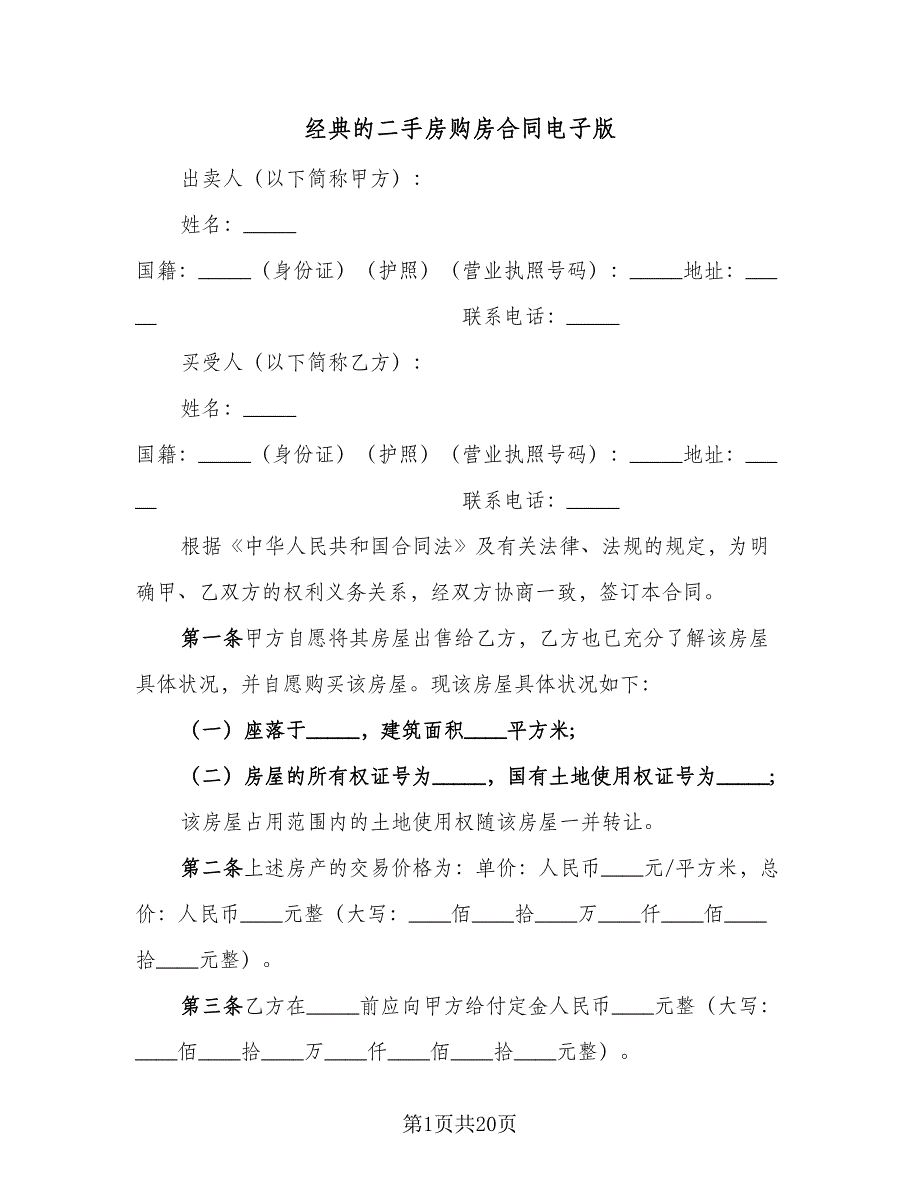 经典的二手房购房合同电子版
出卖人（以下简称甲方）：
姓名：_____
国籍：_____（身份证）（护照）（营业执照号码）：_____地址：___
__ 联系电话：_____
买受人（以下简称乙方）：
姓名：_____
国籍：_____（身份证）（护照）（营业执照号码）：_____地址：___
__ 联系电话：_____
根据《中华人民共和国合同法》及有关法律、法规的规定，为明
确甲、乙双方的权利义务关系，经双方协商一致，签订本合同。
第一条甲方自愿将其房屋出售给乙方，乙方也已充分了解该房屋
具体状况，并自愿购买该房屋。现该房屋具体状况如下：
（一）座落于_____，建筑面积____平方米;
（二）房屋的所有权证号为_____，国有土地使用权证号为_____;
该房屋占用范围内的土地使用权随该房屋一并转让。
第二条上述房产的交易价格为：单价：人民币____元/平方米，总
价：人民币____元整（大写：____佰____拾____万____仟____佰____
拾____元整）。
第三条乙方在_____前应向甲方给付定金人民币____元整（大写：
____佰____拾____万____仟____佰____拾____元整）。
第1页共20页